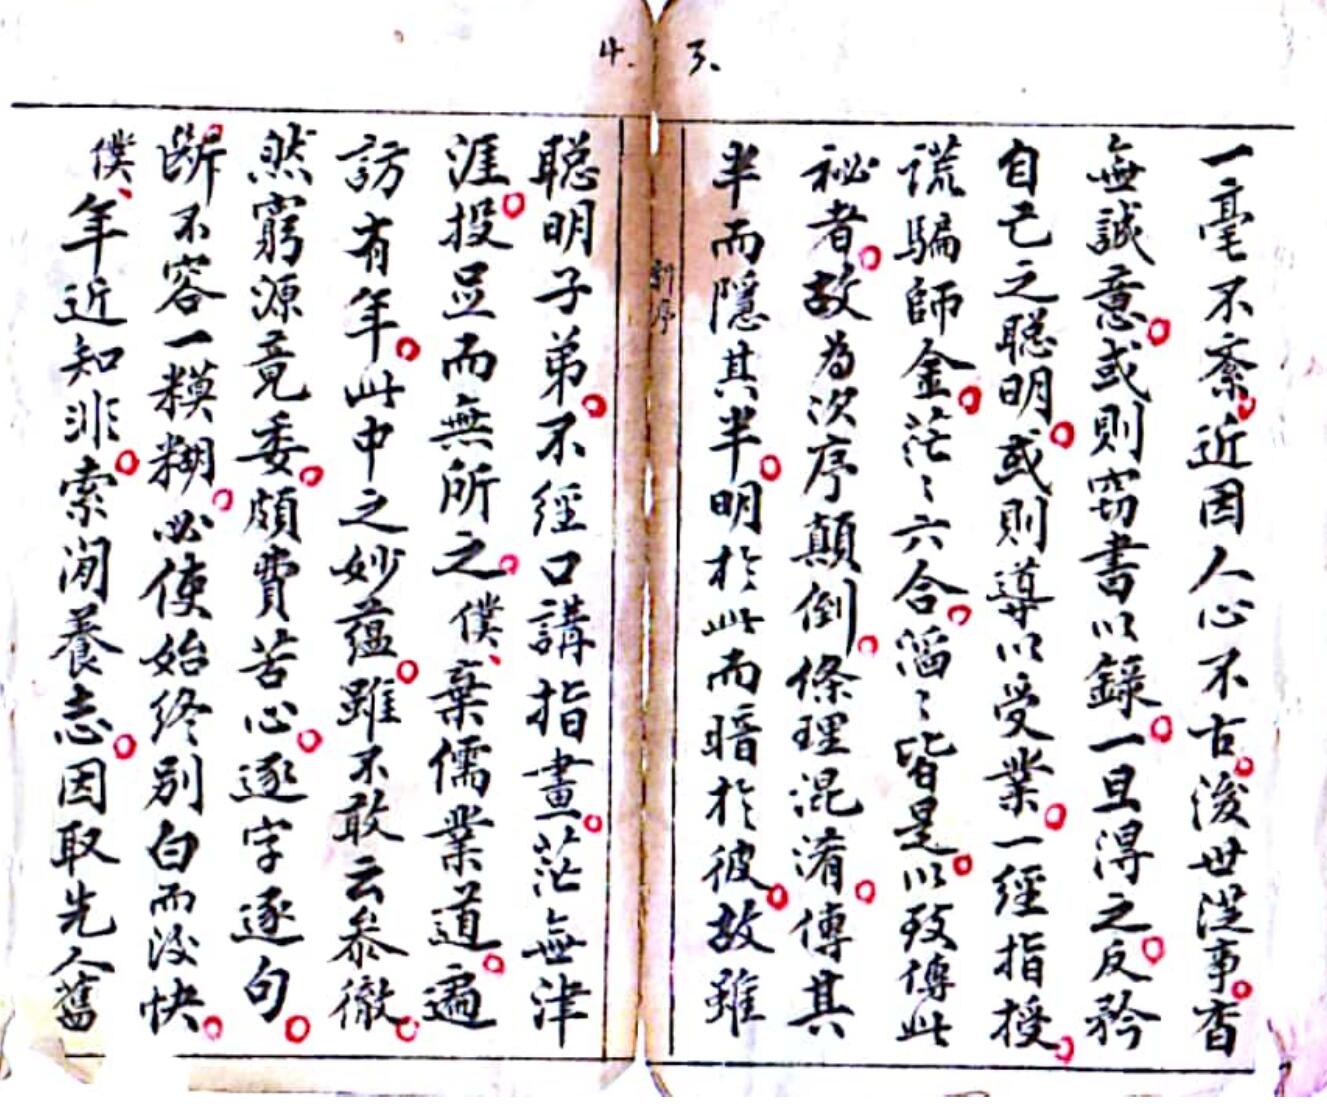 3、
一毫不紊。近因人心不古。後世從事。杳
無誠意。或則窃書以錄。一旦得之。反矜
自己之聰明。或則導以受業。一經指授。
謊騙師金。茫〻六合。滔〻皆是。以致傳此
秘者。故為次序顛倒。條理混淆。傳其
半而隱其半。明於此而暗於彼。故雖
新序
4.
聰明子弟。不經口講指畫。茫無津
涯。投足而無所之。僕、棄儒業道。遍
訪有年。此中之妙蘊。雖不敢云叅徹。
然窮源竟委。頗費苦心。逐字逐句。
斷不容一糢糊。必使始終別白而後快。
僕、年近知非。索閒養志。因取先人舊